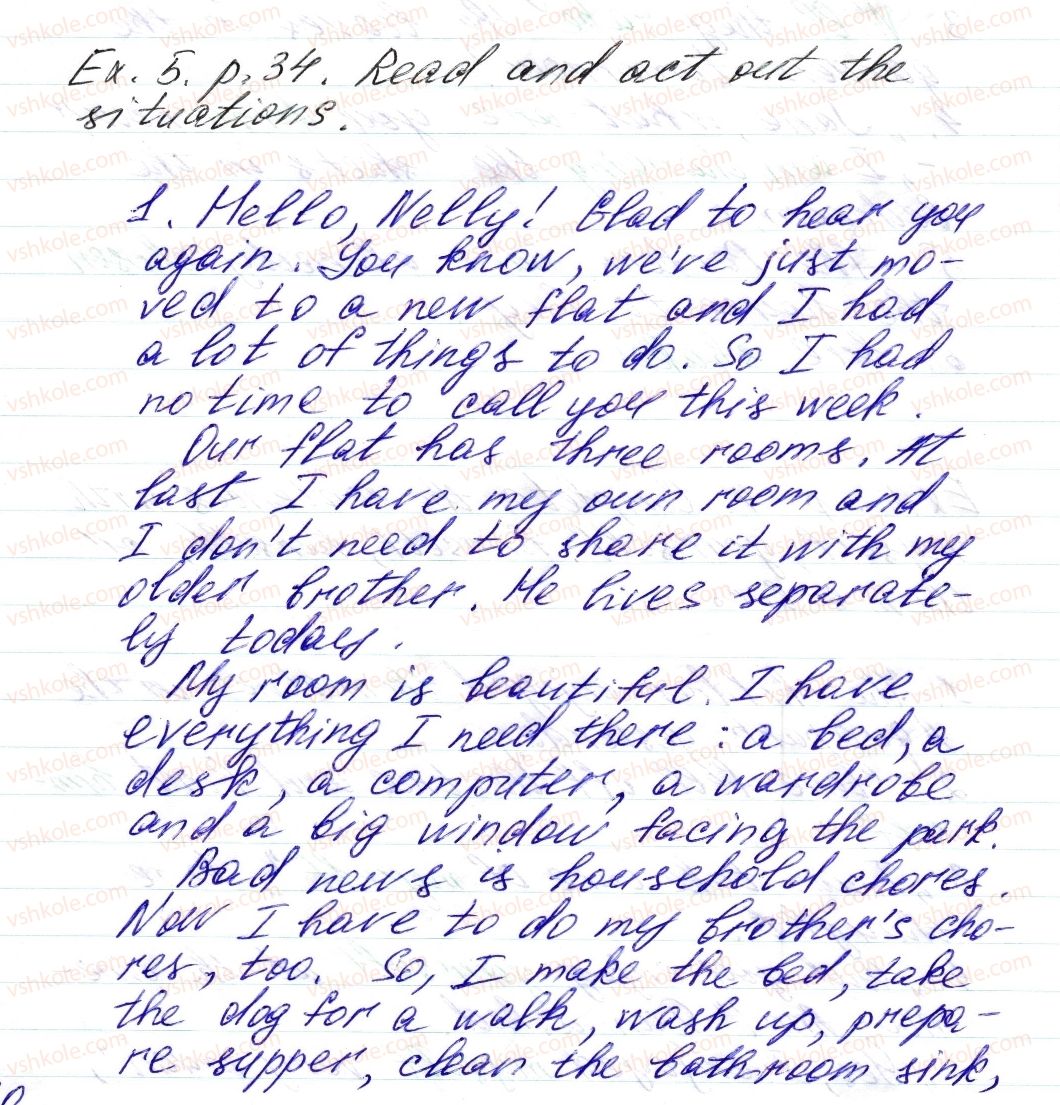 Ex. 5. p. 34. Read and act out the
situations.
1. Hello, Nelly! Glad to hear you
again. You know, we've just mo-
ved to a new flat and I had
a lot of things to do. So I had
no time to call you this week.
Our flat has three rooms. At
last I have my own room and
I don't need to share it with my
older brother. He lives separate-
ly today.
My room is beautiful. I have
everything I need there: a bed, a
desk, a computer, a wardrobe
and a big window facing the park.
Bad news is household chores.
Now I have to do my brother's cho-
res, too. So, I make the bed, take
the dog for a walk, wash up, prepa-
re supper, clean the bathroom sink,
vshkole.com